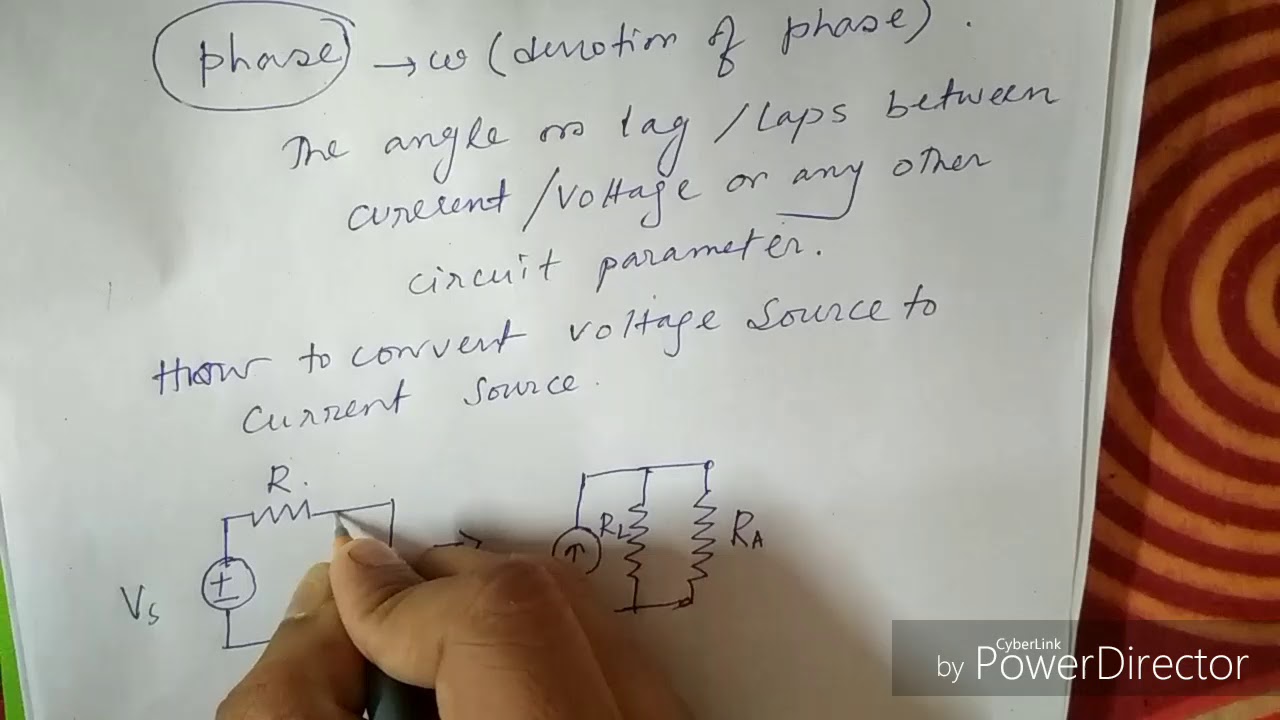 phase → ω (denotion of phase).
The angle or lag / Laps between
current / voltage or any other
circuit parameter.
How to convert voltage source to
current source.
R.
Vs
+
-
→
↑
RL
RA
CyberLink
by PowerDirector